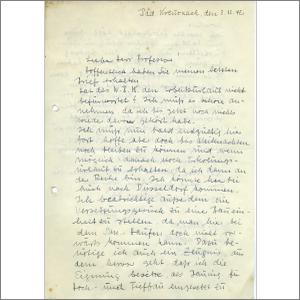 Bad Kreuznach, den 3.11.41.
Lieber Herr Professor
Hoffentlich haben Sie meinen letzten
Brief erhalten
Hat das W.B.K. den Arbeitsurlaub nicht
befürwortet? Ich muß es schon an-
nehmen, da ich bis jetzt noch nichts
wieder davon gehört habe.
Ich muß nun bald endgültig hier
fort hoffe aber doch bis Weihnachten
noch bleiben zu können und wenn
möglich danach noch Erholungs-
urlaub zu erhalten, da ich dann an
der Reihe bin. Ich könne hierbei
auch nach Düsseldorf kommen.
Ich beabsichtige außerdem ein
Versetzungsgesuch zu eine Bauein-
heit zu stellen, da man hier bei
dem doch nicht vor-
wärts kommen kann. Dazu be-
nötige ich auch ein Zeugnis, aus
dem hervor geht daß ich die
Eignung besitze als
Hoch- und Tiefbau eingesetzt zu